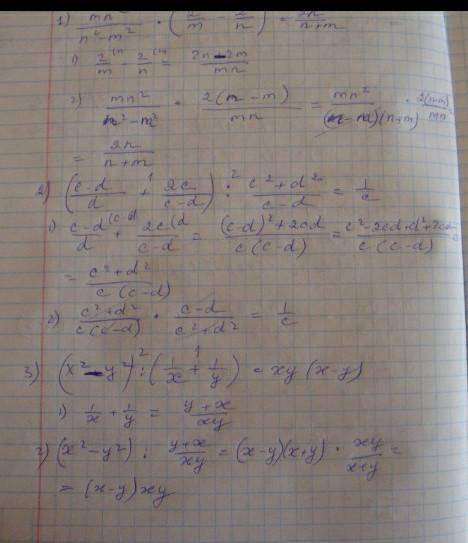 1) mn²/(n²-m²) · (2/m - 2/n) = 2n/(n+m)
1) 2/m - 2/n = (2n-2m)/mn
2) mn²/(n²-m²) · 2(n-m)/mn = mn²/((n-m)(n+m)) · 2(n-m)/mn =
= 2n/(n+m)
2) ((c-d)/d + 2c/(c-d)) : (c²+d²)/(c-d) = 1/c
1) (c-d)/d + 2c/(c-d) = ((c-d)²+2cd)/(c(c-d)) = (c²-2cd+d²+2cd)/(c(c-d)) =
= (c²+d²)/(c(c-d))
2) (c²+d²)/(c(c-d)) · (c-d)/(c²+d²) = 1/c
3) (x²-y²) : (1/x + 1/y) = xy(x-y)
1) 1/x + 1/y = (y+x)/xy
2) (x²-y²) : (y+x)/xy = (x-y)(x+y) · xy/(x+y) =
= (x-y)xy